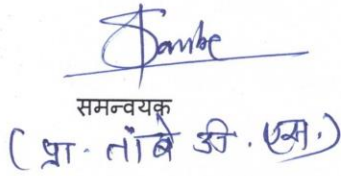 Tambe
समन्वयक
( प्रा. तांबे डी. एस.)